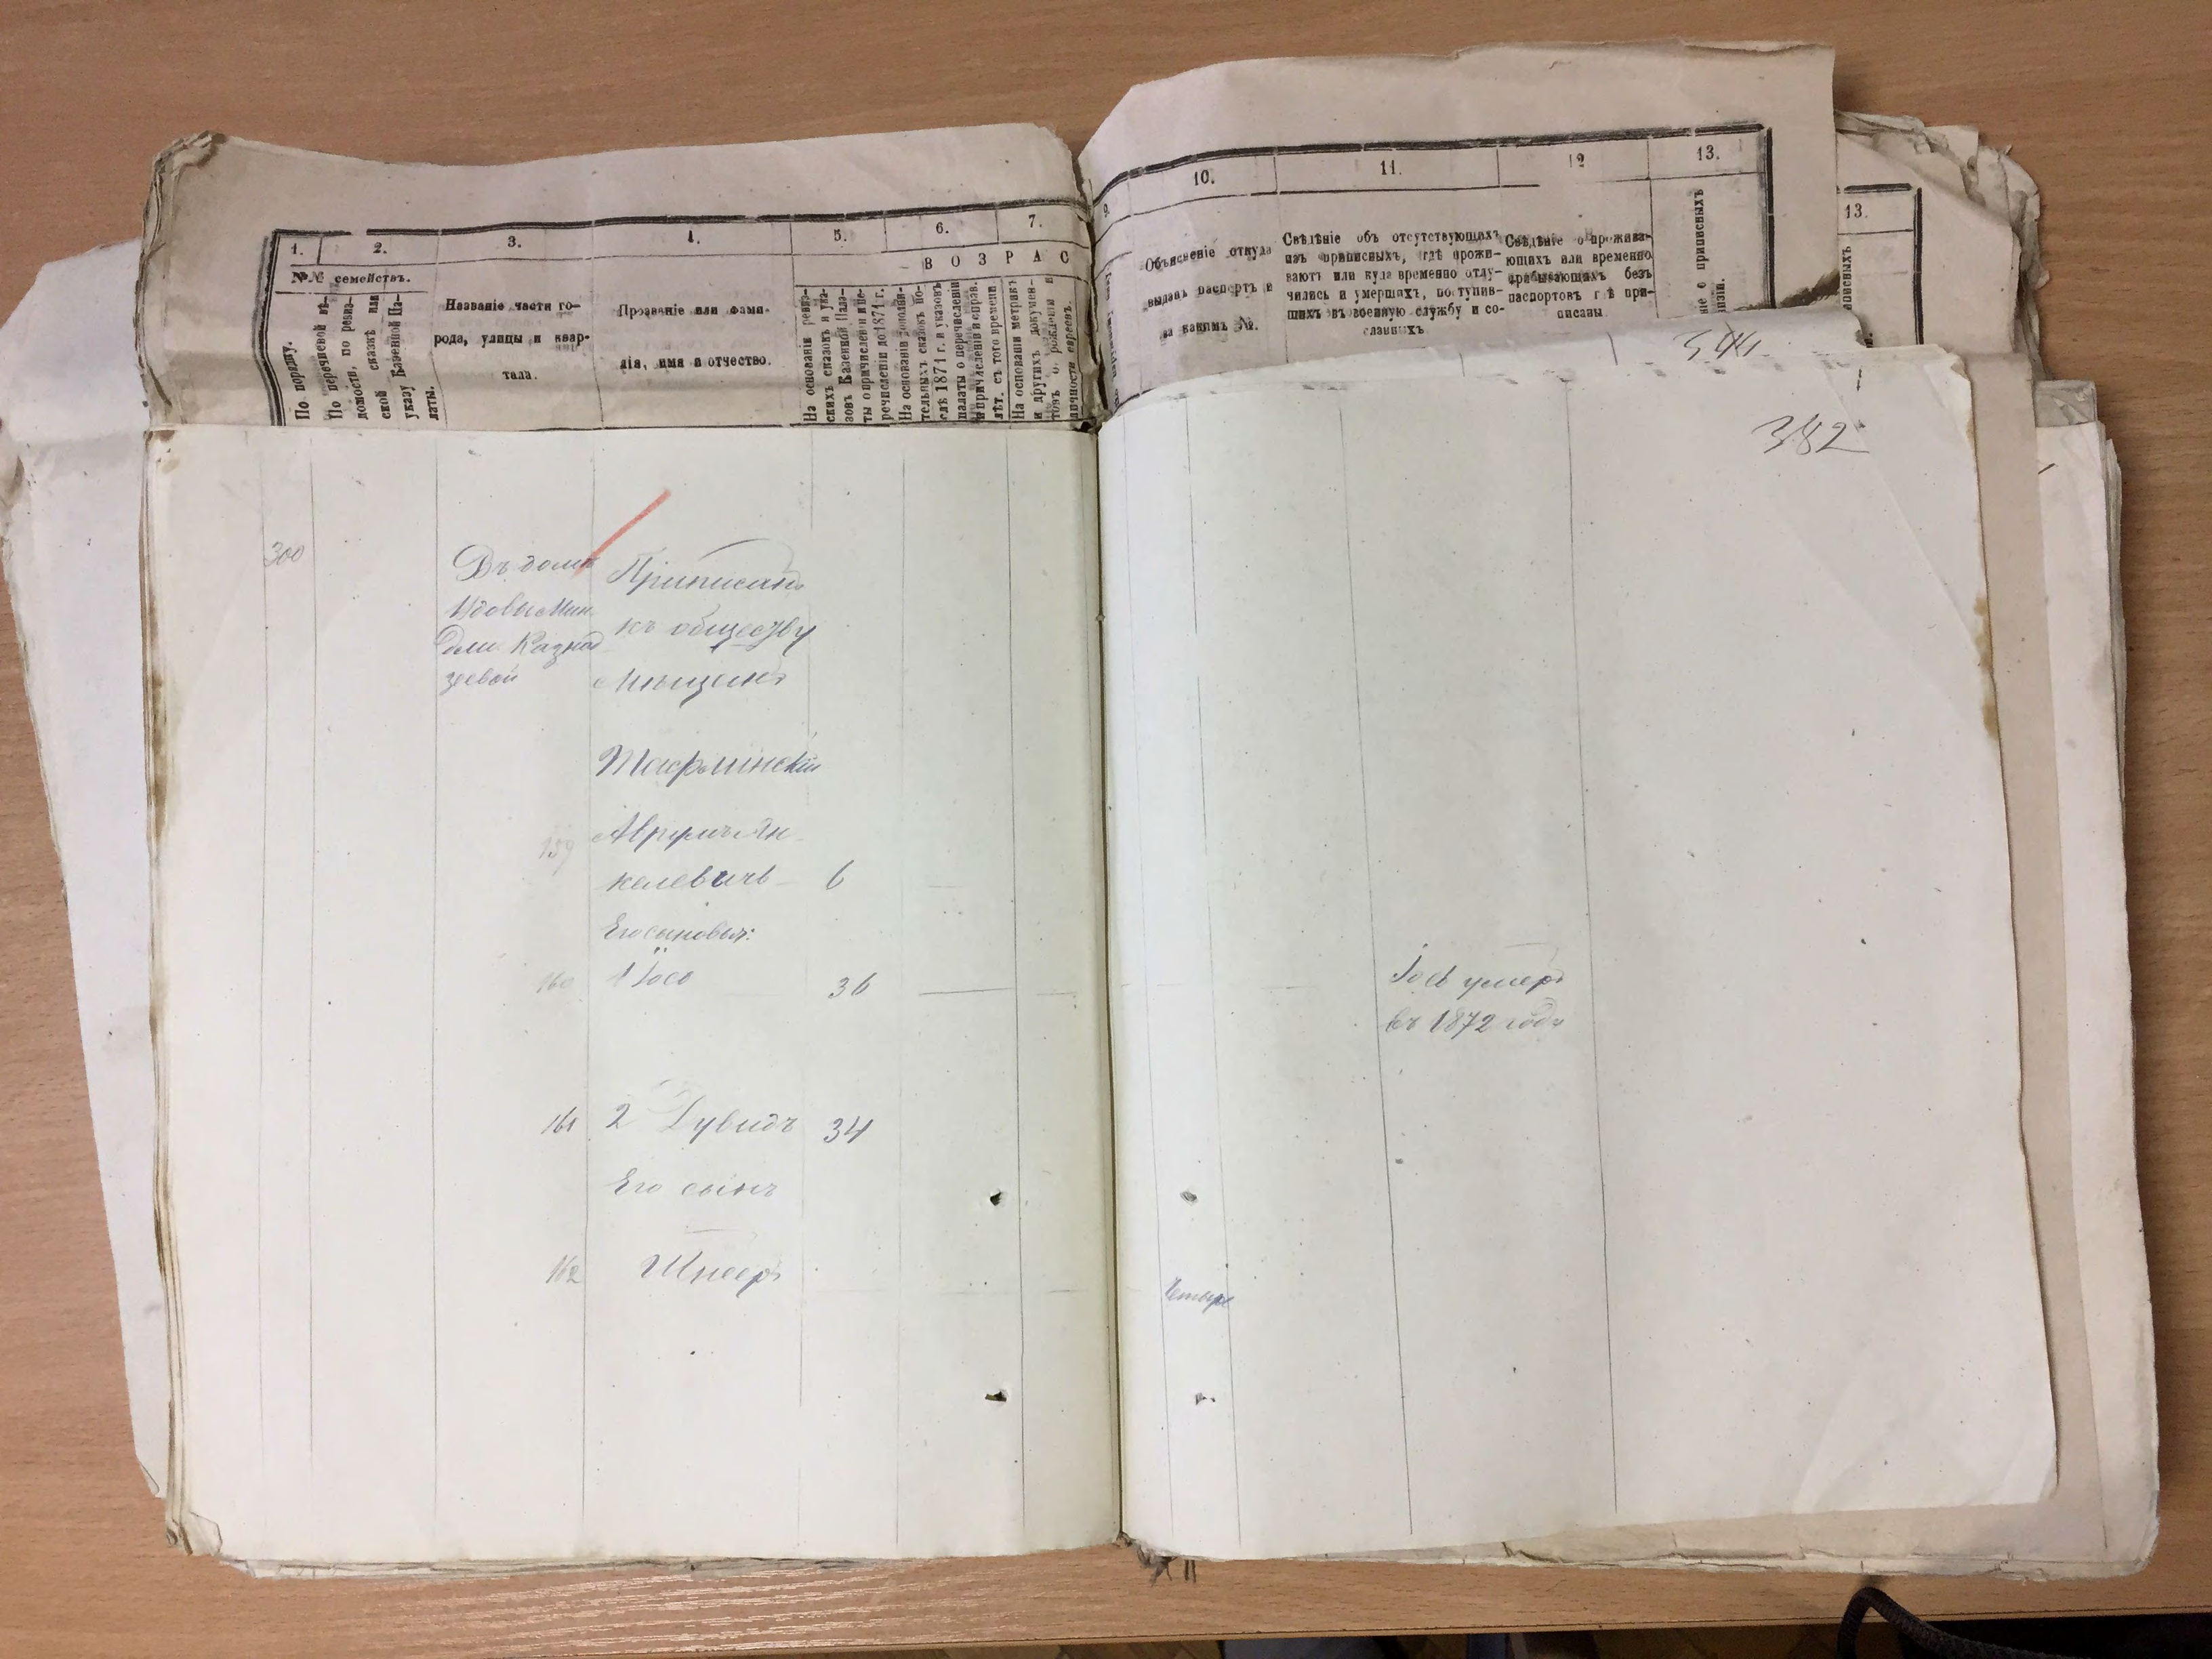 1.
2.
3.
4.
5.
6.
7.
№№ семействъ.
ВОЗРАС
По порядку.
По перечневой вѣ-
домости, по ревиз-
ской сказкѣ или
указу Казенной Па-
латы.
Названіе части го-
рода, улицы и квар-
тала.
Прозваніе или фами-
лія, имя и отчество.
На основаніи ревиз-
скихъ сказокъ и ука-
зовъ Казенной Пала-
ты о причисленіи и пе-
речисленіи до 1871 г.
На основаніи дополни-
тельныхъ сказокъ по-
слѣ 1871 г. и указовъ
палаты о перечисленіи
и причисленіи и справ.
лѣт. съ того времени.
На основаніи метрикъ
и другихъ докумен-
товъ о рожденіи и
личности евреевъ.
9.
10.
11.
12
13.
Объясненіе откуда
выданъ паспортъ и
за какимъ №.
Свѣдѣніе объ отсутствующихъ
изъ приписныхъ, гдѣ прожи-
ваютъ или куда временно отлу-
чились и умершихъ, поступив-
шихъ въ военную службу и со-
сланныхъ
Свѣдѣніе о прожива-
ющихъ или временно
пребывающихъ безъ
паспортовъ гдѣ при-
писаны.
о приписныхъ
13.
382
300
Въ домѣ
Вдовы Мин
дли Казнад
зеевой
Приписанъ
къ обществу
Мѣщанъ
159
Аврумъ Ян-
келевичъ 6
Его сыновья:
160 1 Іось 36
Іось умеръ
въ 1872 году
161 2 Дувидъ 34
Его сынъ
162 Шнееръ
Четыре